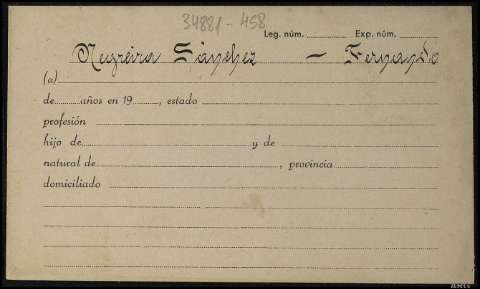 34881-458
Leg. núm. Exp. núm.
Negreira Sánchez - Fernando
(a)
de años en 19 , estado
profesión
hijo de y de
natural de , provincia
domiciliado